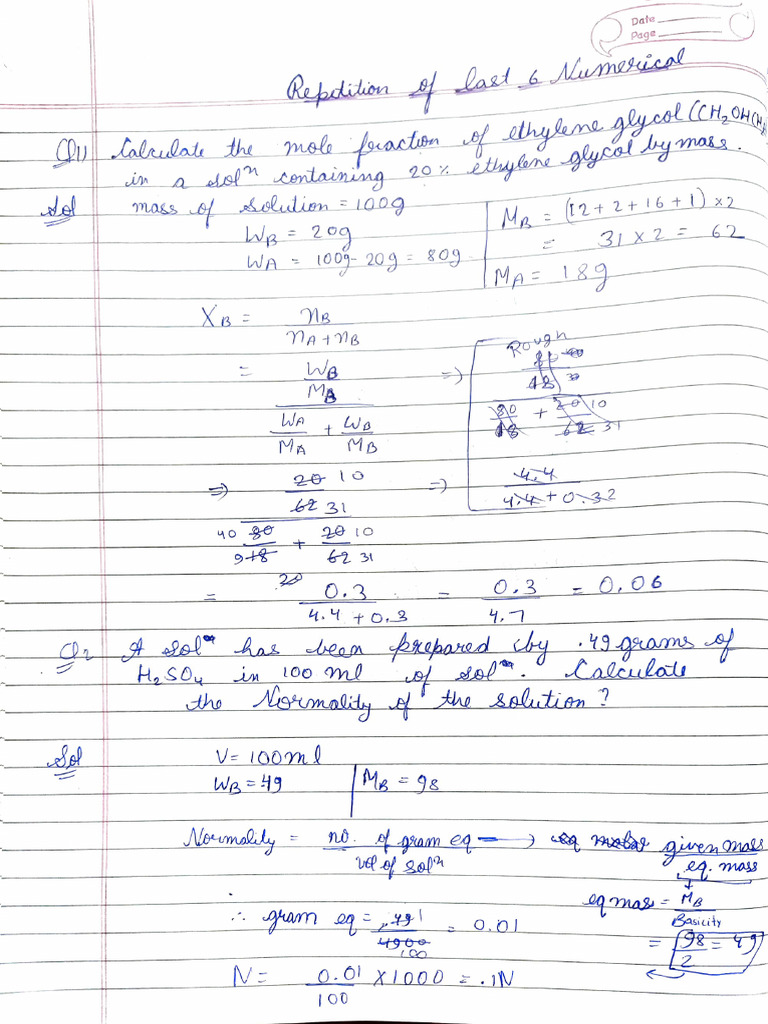 Date
Page
Repetition of last 6 Numerical
Q1) Calculate the mole fraction of ethylene glycol (CH2OH(CH2
in a sol^n containing 20% ethylene glycol by mass.
Sol mass of solution = 100g
WB = 20g
WA = 100g - 20g = 80g
MB = (12+2+16+1) ×2
= 31 × 2 = 62
MA = 18g
XB = nB / nA + nB
= WB/MB / WA/MA + WB/MB
=> Rough
80/18
80/18 + 20/62 10/31
=> 20/62 10/31 => 4.4 / 4.4 + 0.32
40 80/9 18 + 20/62 10/31
= 0.3 / 4.4 + 0.3 = 0.3 / 4.7 = 0.06
Q2 A sol^n has been prepared by .49 grams of
H2SO4 in 100 ml of sol^n. Calculate
the Normality of the solution?
Sol V = 100ml
WB = .49 MB = 98
Normality = no. of gram eq / vol of sol^n → given mass / eq. mass
eq mas = MB / Basicity
= 98/2 = 49
∴ gram eq = .49 1 / 4900 100 = 0.01
N = 0.01 / 100 × 1000 = .1N